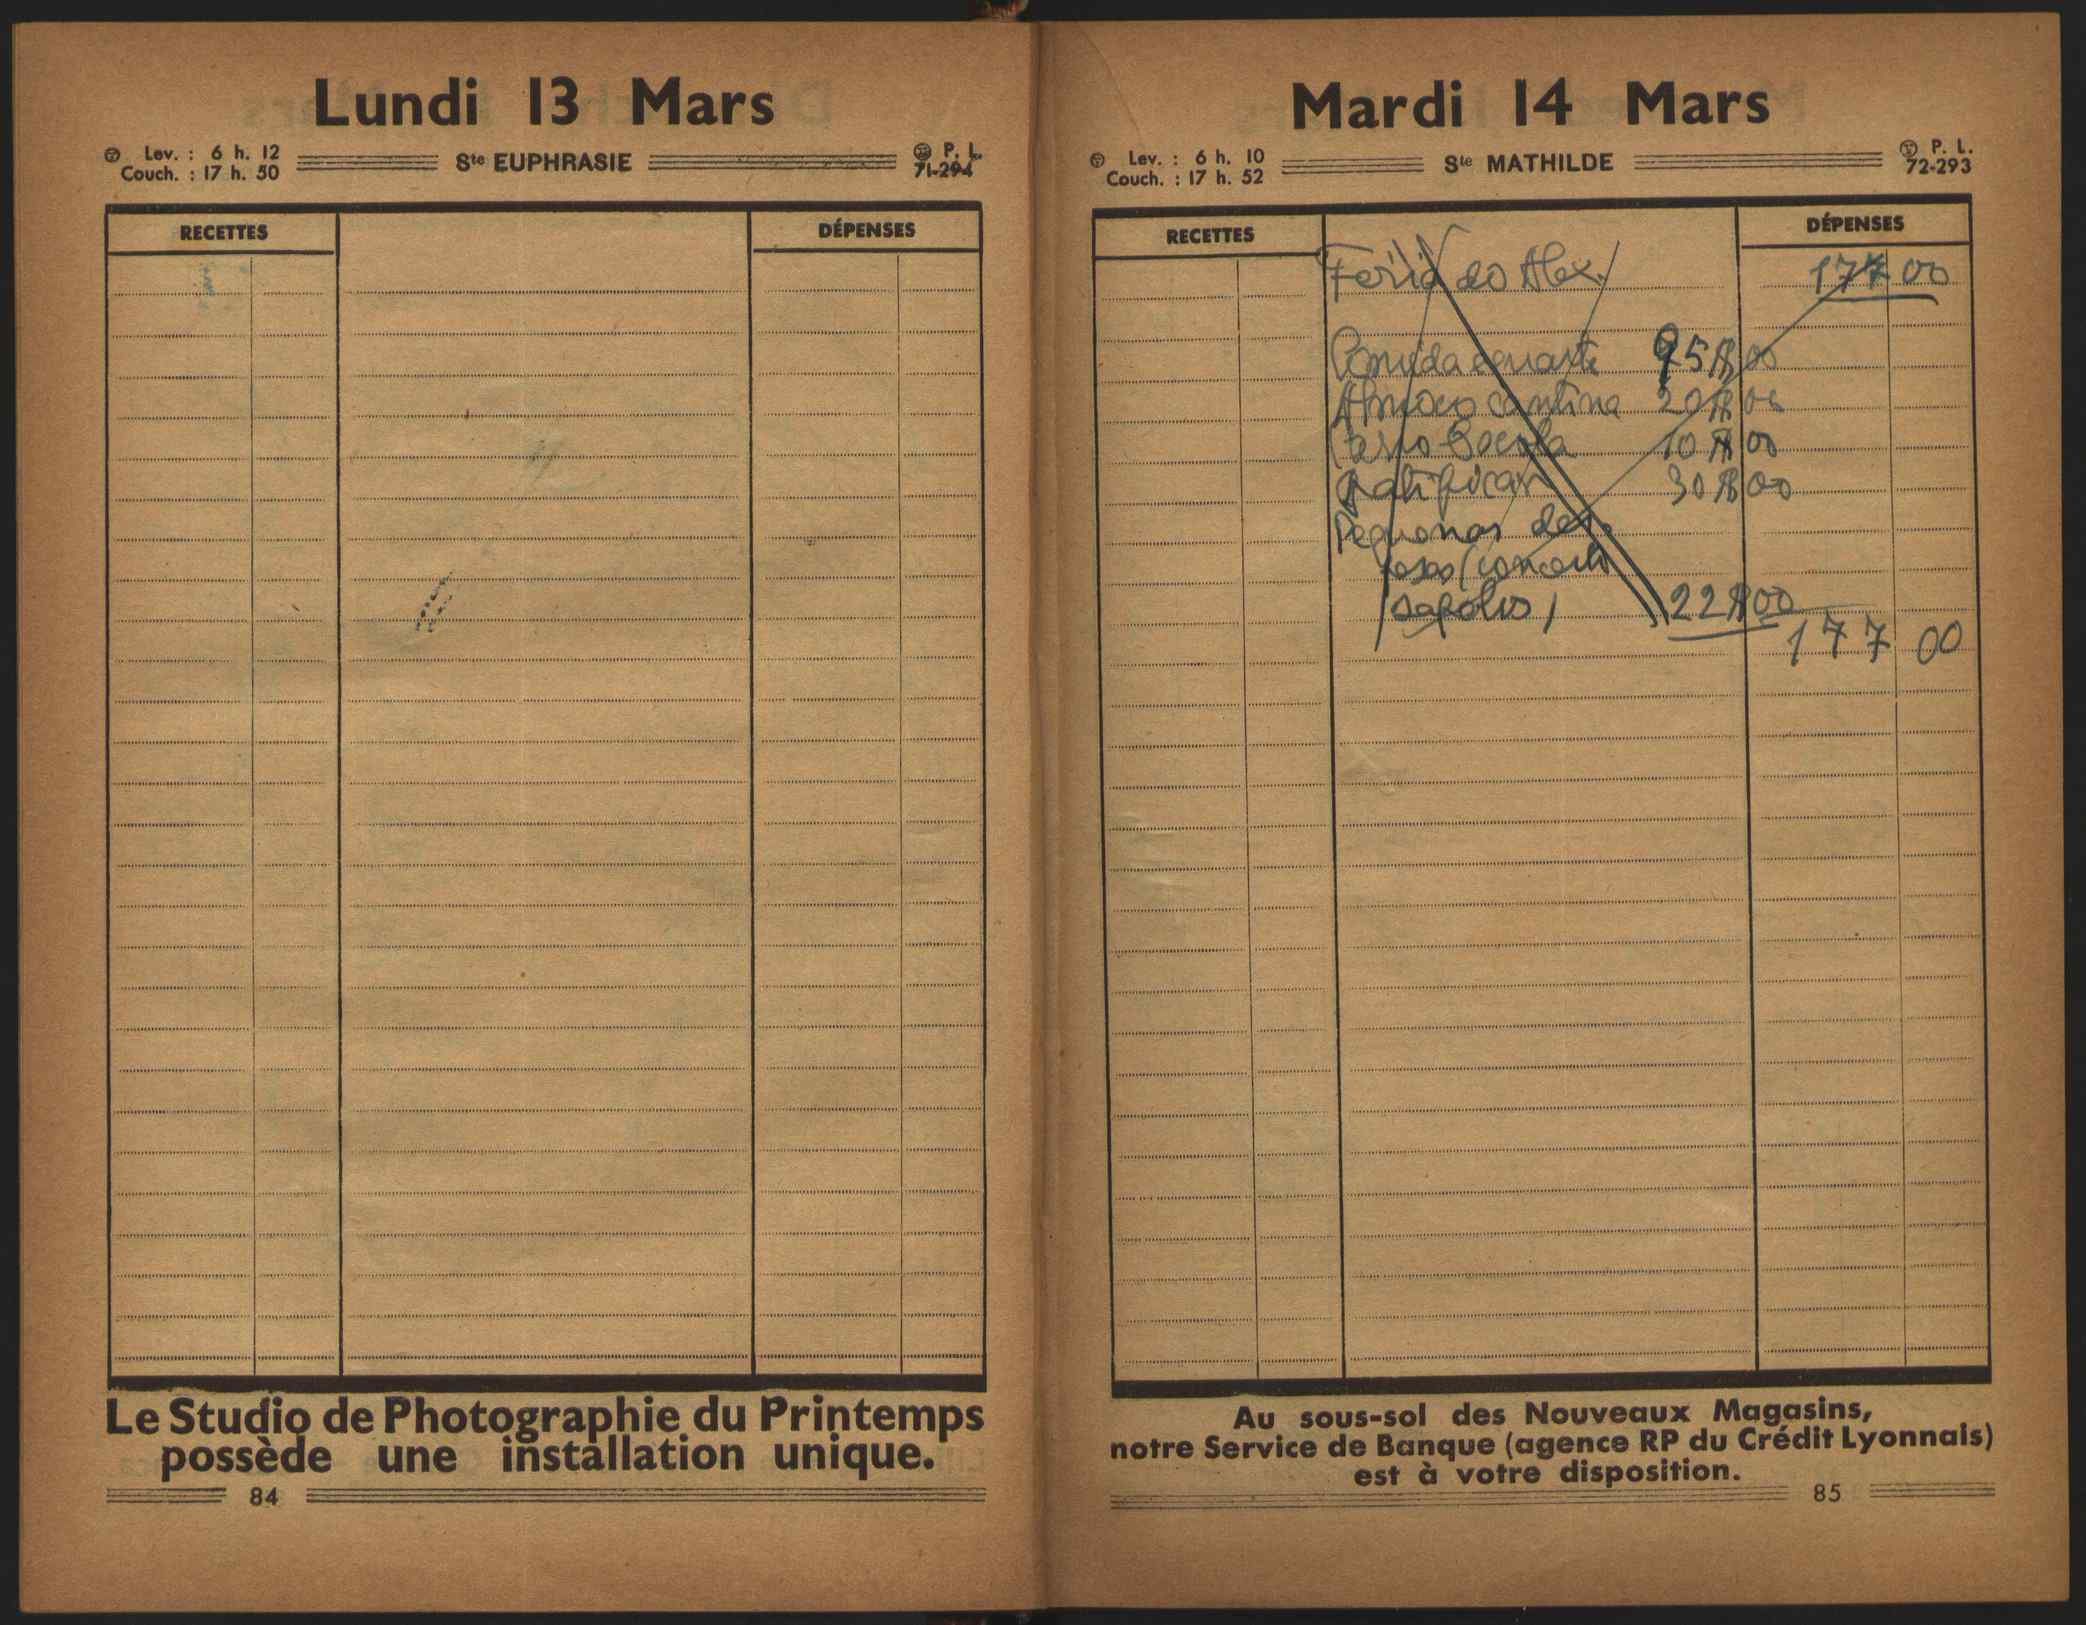 Lundi 13 Mars
Lev. : 6 h. 12
Couch. : 17 h. 50
Ste EUPHRASIE
P. L.
71-294
RECETTES
DÉPENSES
Le Studio de Photographie du Printemps
possède une installation unique.
84
Mardi 14 Mars
Lev. : 6 h. 10
Couch. : 17 h. 52
Ste MATHILDE
P. L.
72-293
RECETTES
DÉPENSES
Feria do Alex. 177 00
Comida e quarto 95$00
Almoço cantina 20$00
10$00
gratificar 30$00
Pequenas des
pesas (concerto
sapatos) 22$00
177 00
Au sous-sol des Nouveaux Magasins,
notre Service de Banque (agence RP du Crédit Lyonnais)
est à votre disposition.
85